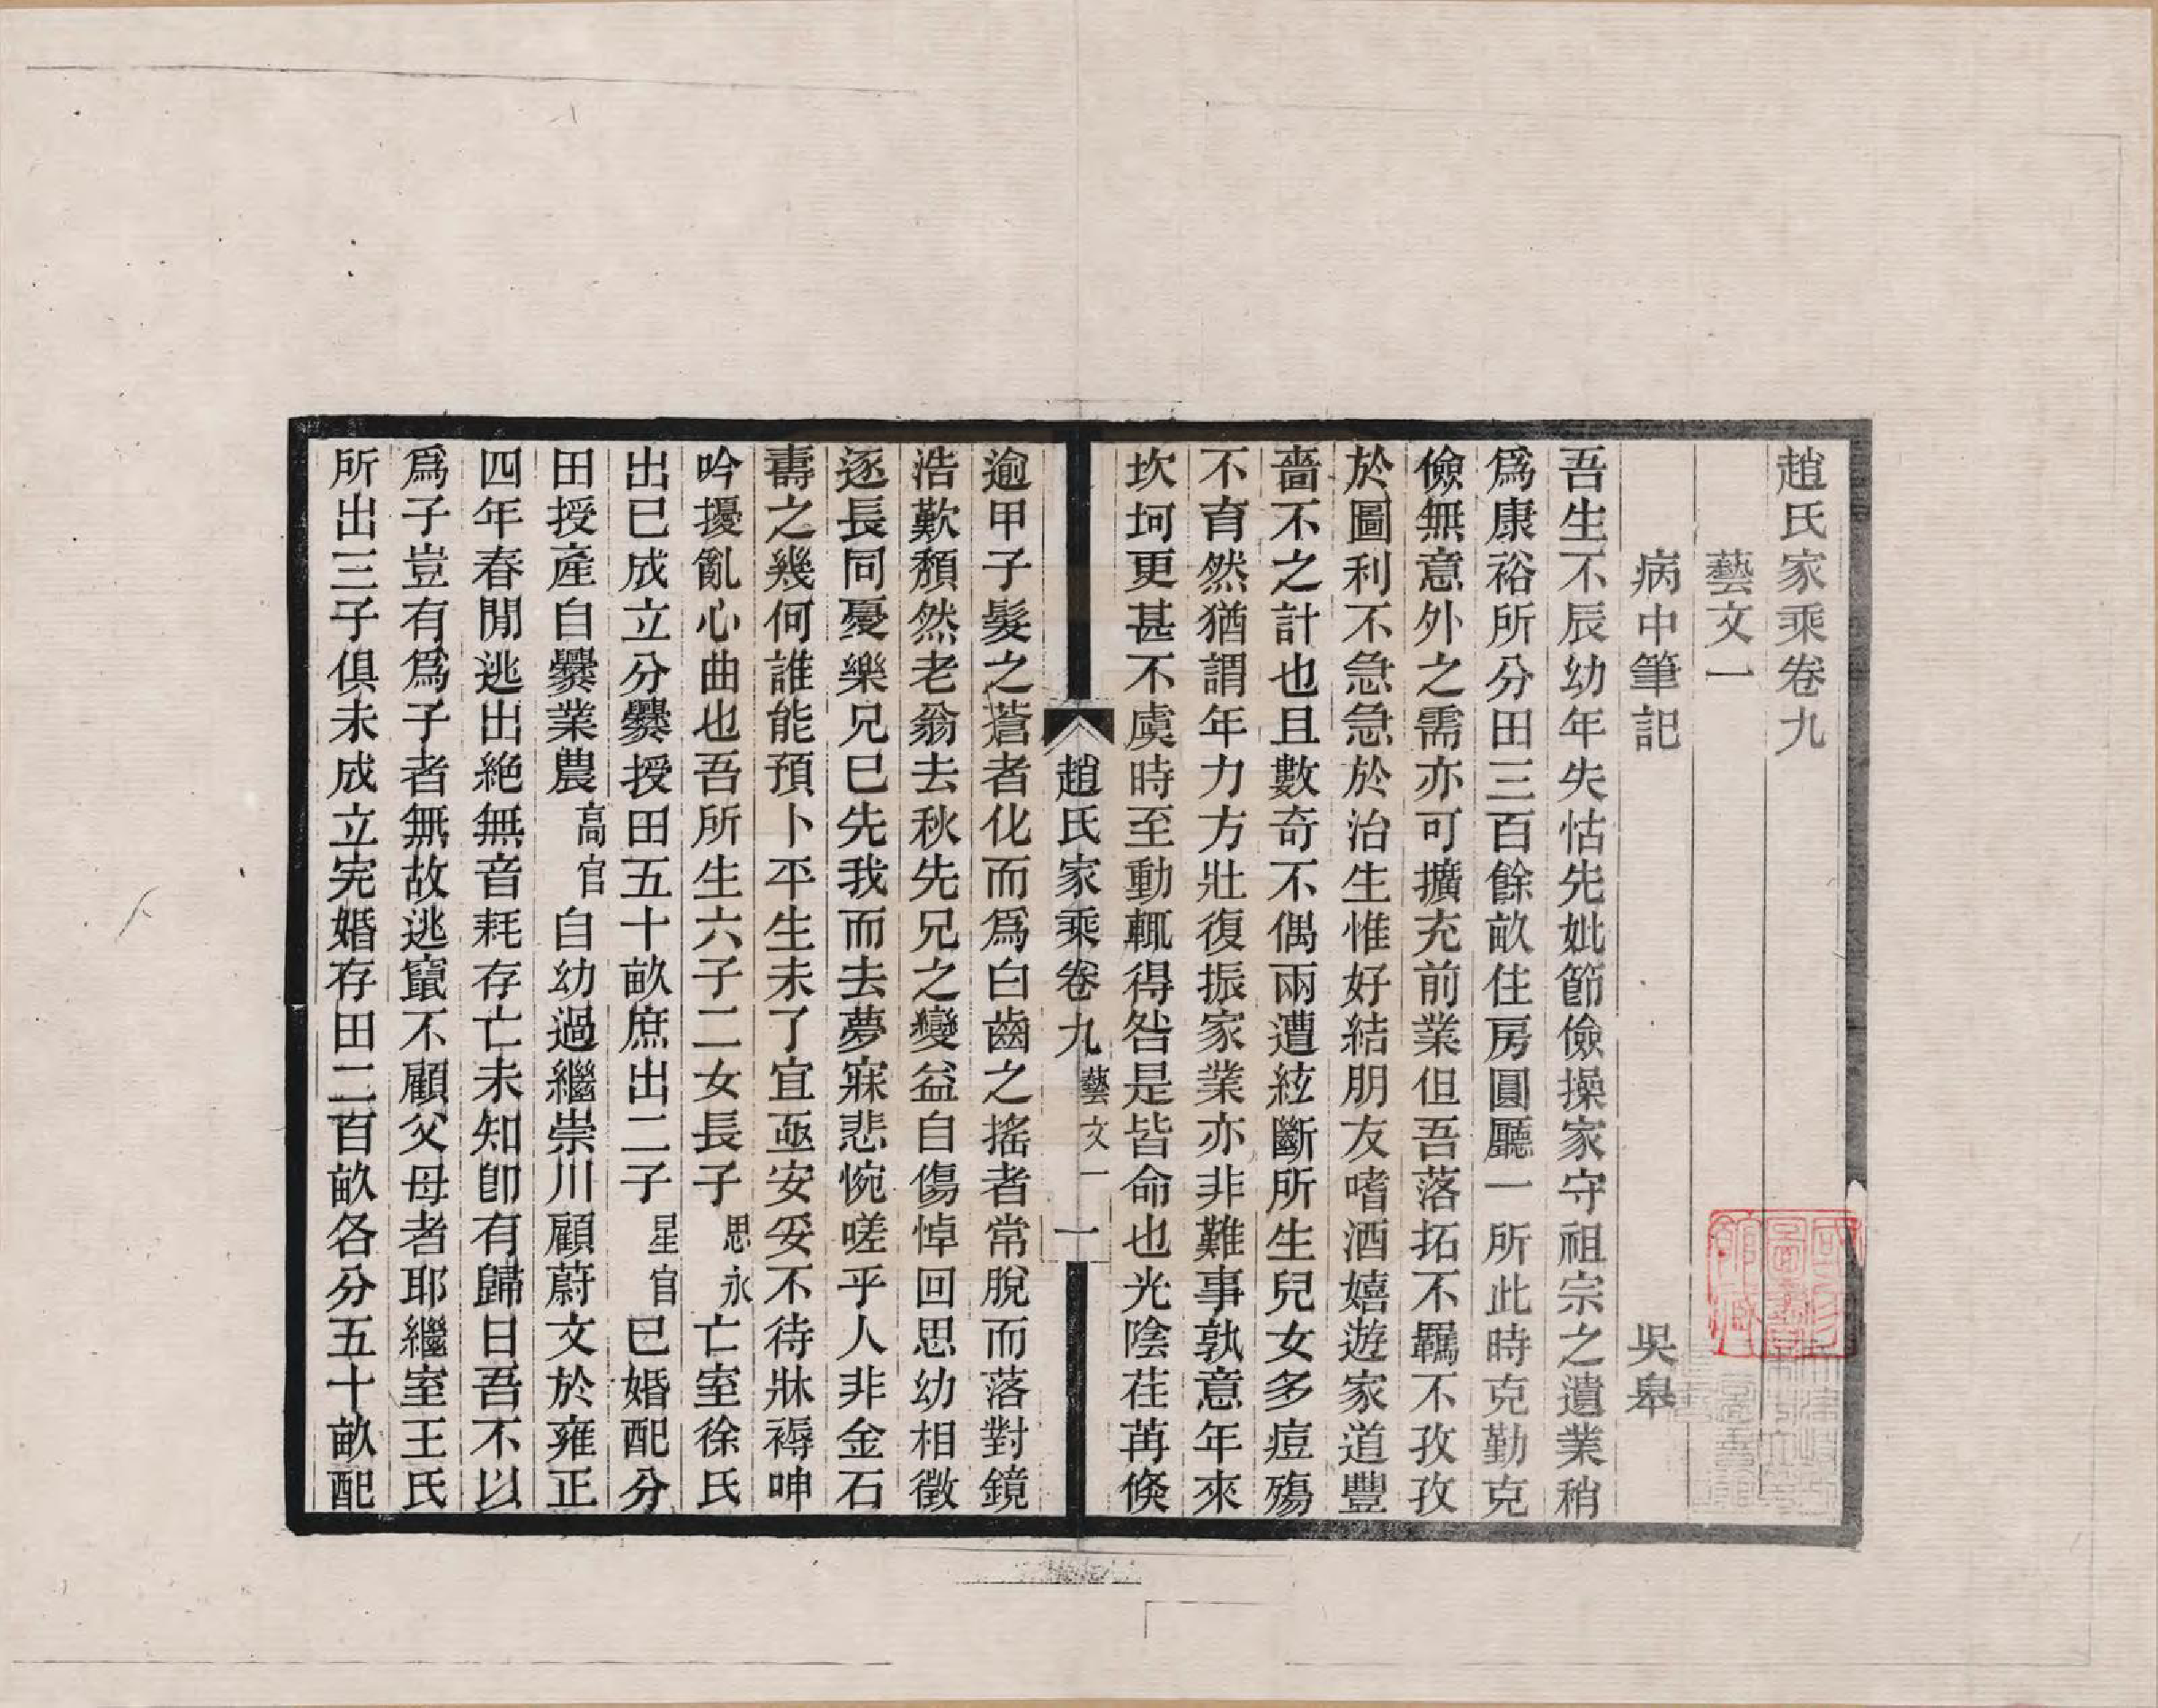 趙氏家乘卷九
藝文一
病中筆記　吳皋
吾生不辰幼年失怙先妣節儉操家守祖宗之遺業稍
爲康裕所分田三百餘畝住房圓廳一所此時克勤克
儉無意外之需亦可擴充前業但吾落拓不羈不孜孜
於圖利不急急於治生惟好結朋友嗜酒嬉遊家道豐
嗇不之計也且數奇不偶兩遭絃斷所生兒女多痘殤
不育然猶謂年力方壯復振家業亦非難事孰意年來
坎坷更甚不虞時至動輒得咎是皆命也光陰荏苒倏
趙氏家乘卷九　藝文一　一
逾甲子髮之蒼者化而爲白齒之搖者常脫而落對鏡
浩歎頹然老翁去秋先兄之變益自傷悼回思幼相徵
逐長同憂樂兄已先我而去夢寐悲惋嗟乎人非金石
壽之幾何誰能預卜平生未了宜亟安妥不待牀褥呻
吟擾亂心曲也吾所生六子二女長子思永亡室徐氏
出已成立分爨授田五十畝庶出二子星官已婚配分
田授產自爨業農高官自幼過繼崇川顧蔚文於雍正
四年春閒逃出絶無音耗存亡未知卽有歸日吾不以
爲子豈有爲子者無故逃竄不顧父母者耶繼室王氏
所出三子俱未成立完婚存田二百畝各分五十畝配